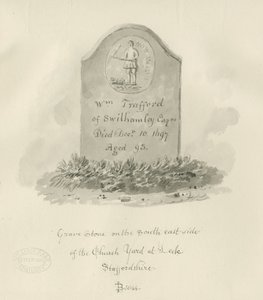 Wm Trafford
of Swithamley Esqre
Died Decr. 10. 1697
Aged 93.
Grave Stone on the South east side
of the Church Yard at Leek
Staffordshire.